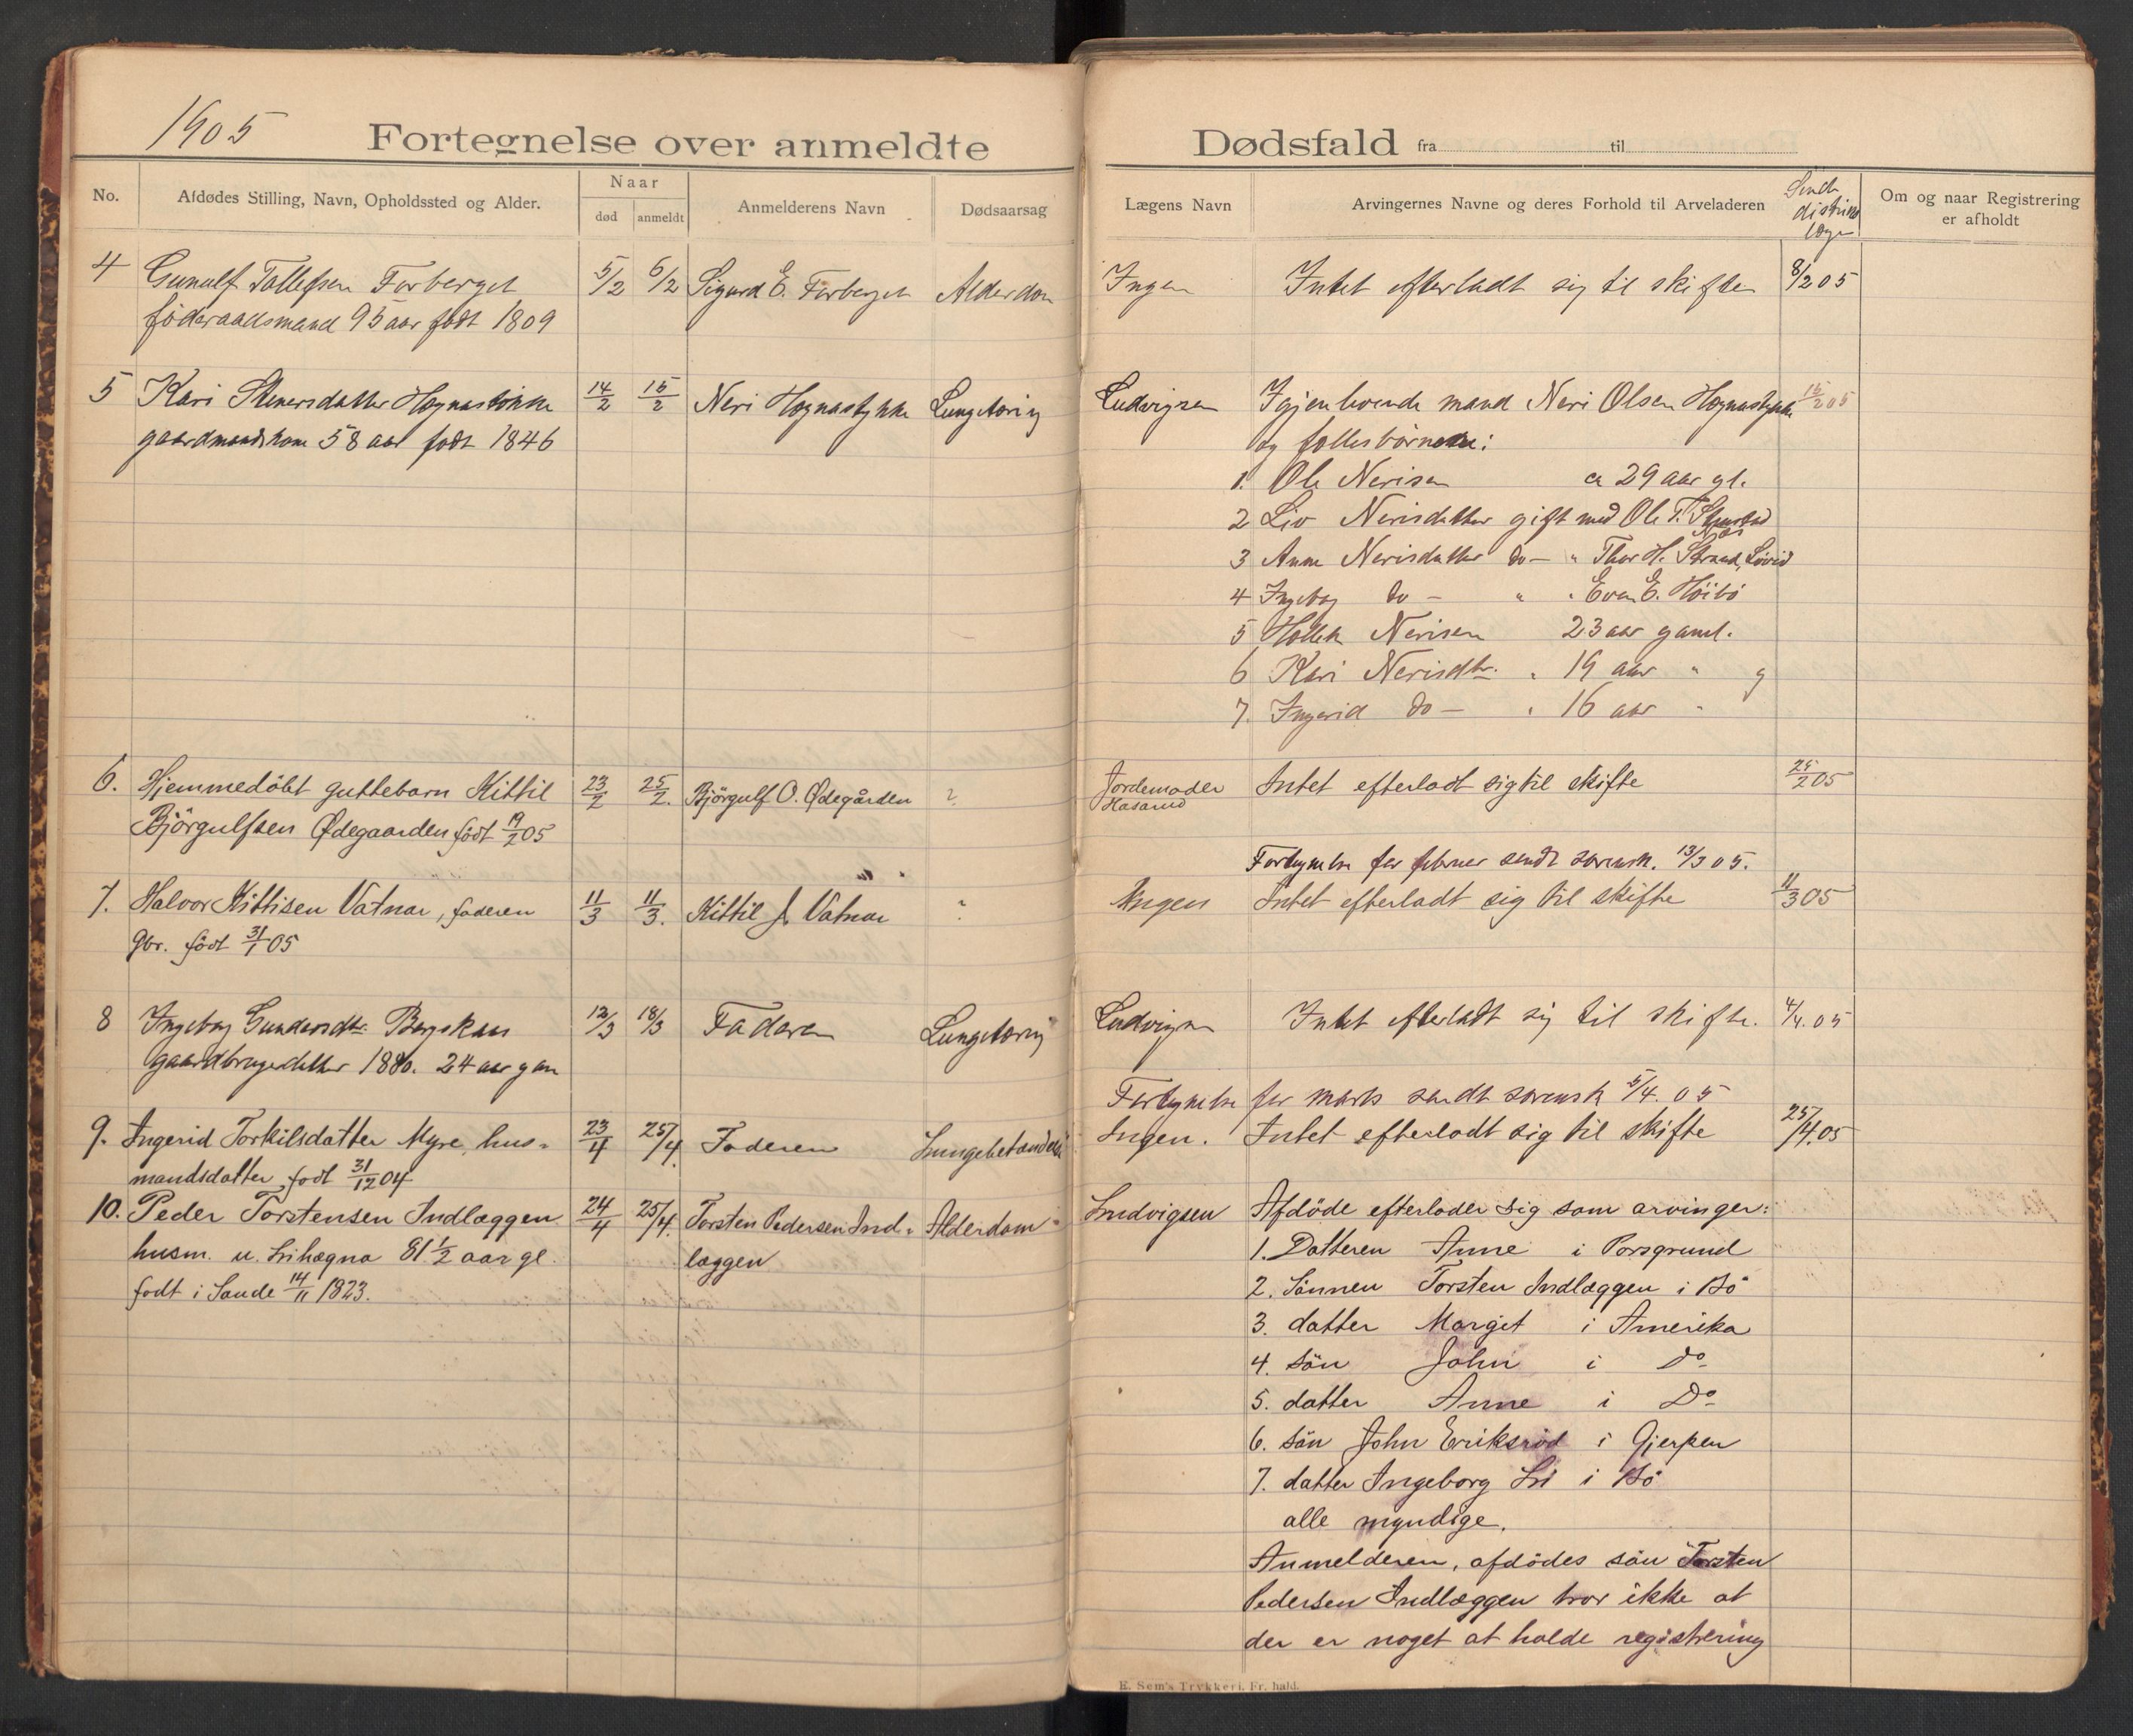 1905
Fortegnelse over anmeldte Dødsfald fra til
No. Afdødes Stilling, Navn, Opholdssted og Alder. Naar død anmeldt Anmelderens Navn Dødsaarsag
Lægens Navn Arvingernes Navne og deres Forhold til Arveladeren Sendt distrikts læge Om og naar Registrering er afholdt
4 Gunulf Tallefsen Forberget 5/2 6/2 Sigurd E. Forberget Alderdom Ingen Intet efterladt sig til skifte 8/2 05
föderaadsmand 95 aar født 1809
5 Kari Stenersdatter Hognastykke 14/2 15/2 Neri Hognastykke Lungetæring Ludvigsen Igjenlevende mand Neri Olsen Hognastykke 15/2 05
gaardmandskone 58 aar født 1846 og fællesbörnene:
1. Ole Nerisen ca 29 aar gl.
2 Liv Nerisdatter gift med Ole T.
3 Anne Nerisdatter do — " Thor H. Strand, Lövid
4 Ingebog do — " " Even E. Höibö
5 Hollek Nerisen 23 aar gaml.
6 Kari Nerisdtr. " 19 aar " g
7. Ingerid do — " 16 aar "
6. Hjemmedöbt guttebarn Kittil 23/2 25/2. Björgulf O. Ødegården ? Jordemoder Hasarud Intet efterladt sig til skifte 25/2 05
Björgulfsen Ødegaarden födt 19/2 05
Fortegnelse for februar sendt sorensk. 13/3 05.
7. Halvor Kittilsen Vatnar, faderen 11/3 11/3. Kittil J. Vatnar ? Ingen Intet efterladt sig til skifte 11/3 05
gbr. födt 31/1 05
8 Ingebog Gundersdtr. Bergskaas 12/3 18/3 Faderen Lungetæring Ludvigsen Intet efterladt sig til skifte. 4/4. 05
gaardbrugerdatter 1880. 24 aar gam
Fortegnelse for marts sendt sorensk 5/4. 05
9. Ingerid Torkilsdatter Myre, hus- 23/4 25/4. Faderen Lungebetændelse Ingen. Intet efterladt sig til skifte 25/4. 05
mandsdatter, födt 31/12 04
10. Peder Torstensen Indlæggen 24/4 25/4. Torsten Pedersen Ind- Alderdom Ludvigsen Afdöde efterlader sig som arvinger:
husm. u. Lihægna 81 1/2 aar gl. læggen 1. Datteren Anne i Porsgrund
födt i Saude 14/11 1823. 2. Sönnen Torsten Indlæggen i Bö
3. datter Margit i Amerika
4. sön John i Do
5. datter Anne i Do
6. sön John Eriksröd i Gjerpen
7. datter Ingeborg Li i Bö
alle myndige.
Anmelderen, afdödes sön Torsten
Pedersen Indlæggen tror ikke at
der er noget at holde registrering
E. Sem's Trykkeri, Fr. hald.